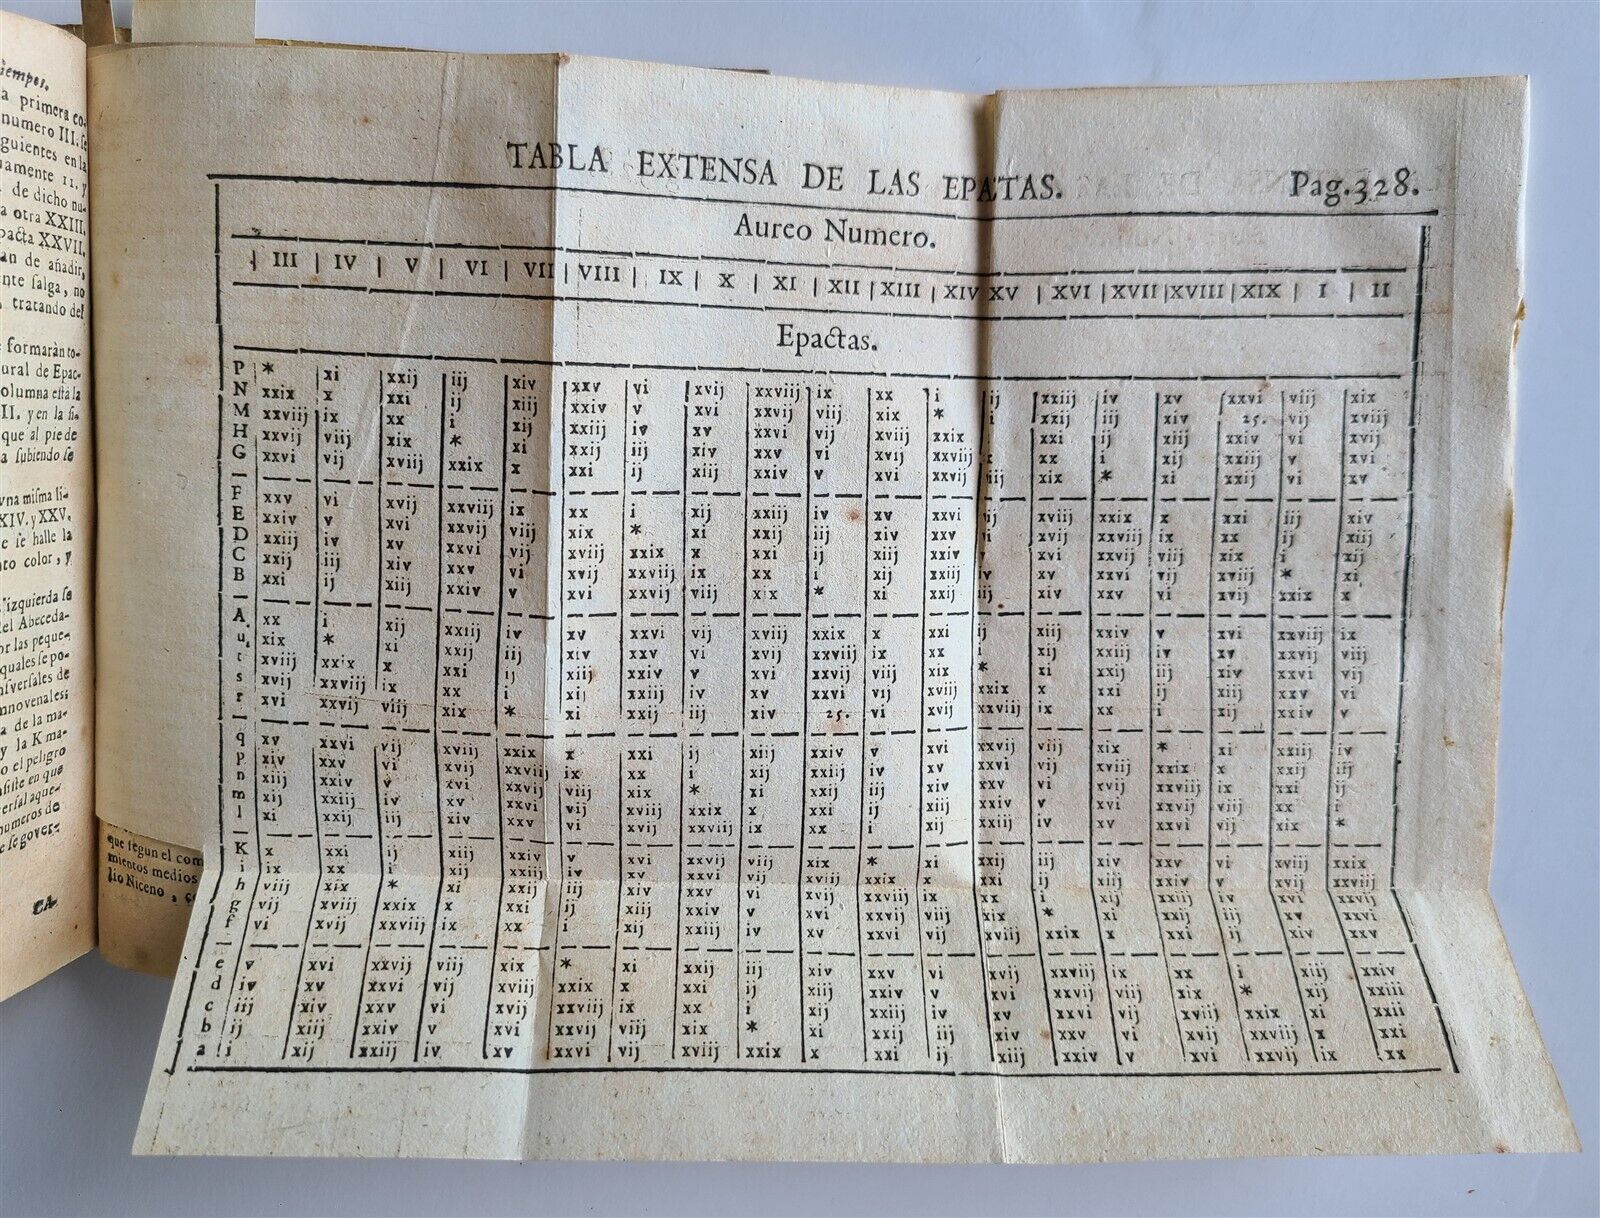 iempos.
a primera co-
numero III. se
guientes en la
uamente 11. y
de dicho nu-
a otra XXIII.
pacta XXVII.
an de añadir,
nte salga, no
tratando del
formaràn to-
ural de Epac-
olumna està la
II. y en la si-
que al pie de
a subiendo se
vna misma li-
XIV. y XXV.
e se halle la
nto color, y
izquierda se
del Abeceda-
or las peque-
quales se po-
niversales de
mnovenales:
a de la ma-
y la K ma-
o el peligro
nsiste en que
ersal aque-
numeros de
e se gover-
CA-
que segun el com
mientos medios
lio Niceno, co
TABLA EXTENSA DE LAS EPACTAS. Pag. 328.
Aureo Numero.
III IV V VI VII VIII IX X XI XII XIII XIV XV XVI XVII XVIII XIX I II
Epactas.
P * xi xxij iij xiv xxv vi xvij xxviij ix xx i ij xxiij iv xv xxvi viij xix
N xxix x xxi ij xiij xxiv v xvi xxvij viij xix * i xxij iij xiv 25. vij xviij
M xxviij ix xx i xij xxiij iv xv xxvi vij xviij xxix x xxi ij xiij xxiv vi xvij
H xxvij viij xix * xi xxij iij xiv xxv vi xvij xxviij x xx i xij xxiij v xvi
G xxvi vij xviij xxix x xxi ij xiij xxiv v xvi xxvij iij xix * xi xxij iv xv
F xxv vi xvij xxviij ix xx i xij xxiij iv xv xxvi vij xviij xxix x xxi iij xiv
E xxiv v xvi xxvij viij xix * xi xxij iij xiv xxv vi xvij xxviij ix xx ij xiij
D xxiij iv xv xxvi vij xviij xxix x xxi ij xiij xxiv v xvi xxvij viij xix i xij
C xxij iij xiv xxv vi xvij xxviij ix xx i xij xxiij iv xv xxvi vij xviij * xi
B xxi ij xiij xxiv v xvi xxvij viij xix * xi xxij iij xiv xxv vi xvij xxix x
A xx i xij xxiij iv xv xxvi vij xviij xxix x xxi ij xiij xxiv v xvi xxviij ix
u xix * xi xxij iij xiv xxv vi xvij xxviij ix xx i xij xxiij iv xv xxvij viij
t xviij xxix x xxi ij xiij xxiv v xvi xxvij viij xix * xi xxij iij xiv xxvi vij
s xvij xxviij ix xx i xij xxiij iv xv xxvi vij xviij xxix x xxi ij xiij xxv vi
r xvi xxvij viij xix * xi xxij iij xiv 25. vi xvij xxviij ix xx i xij xxiv v
q xv xxvi vij xviij xxix x xxi ij xiij xxiv v xvi xxvij viij xix * xi xxiij iv
p xiv xxv vi xvij xxviij ix xx i xij xxiij iv xv xxvi vij xviij xxix x xxij iij
n xiij xxiv v xvi xxvij viij xix * xi xxij iij xiv xxv vi xvij xxviij ix xxi ij
m xij xxiij iv xv xxvi vij xviij xxix x xxi ij xiij xxiv v xvi xxvij viij xx i
l xi xxij iij xiv xxv vi xvij xxviij ix xx i xij xxiij iv xv xxvi vij xix *
K x xxi ij xiij xxiv v xvi xxvij viij xix * xi xxij iij xiv xxv vi xviij xxix
i ix xx i xij xxiij iv xv xxvi vij xviij xxix x xxi ij xiij xxiv v xvij xxviij
h viij xix * xi xxij iij xiv xxv vi xvij xxviij ix xx i xij xxiij iv xvi xxvij
g vij xviij xxix x xxi ij xiij xxiv v xvi xxvij viij xix * xi xxij iij xv xxvi
f vi xvij xxviij ix xx i xij xxiij iv xv xxvi vij xviij xxix x xxi ij xiv xxv
e v xvi xxvij viij xix * xi xxij iij xiv xxv vi xvij xxviij ix xx i xiij xxiv
d iv xv xxvi vij xviij xxix x xxi ij xiij xxiv v xvi xxvij viij xix * xij xxiii
c iij xiv xxv vi xvij xxviij ix xx i xij xxiij iv xv xxvi vij xviij xxix xi xxii
b ij xiij xxiv v xvi xxvij viij xix * xi xxij iij xiv xxv vi xvij xxviij x xxi
a i xij xxiij iv xv xxvi vij xviij xxix x xxi ij xiij xxiv v xvi xxvij ix xx